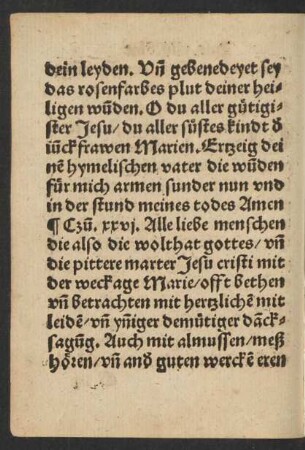 dein leyden. Vñ gebenedeyet sey
das rosenfarbes plut deiner hei-
ligen wũden. O du aller gütigi-
ster Jesu / du aller süstes kindt d̕
iũckfrawen Marien. Ertzeig dei
nē hymelischen vater die wũden
für mich armen sunder nun vnd
in der stund meines todes Amen
¶ Czũ. xxvj. Alle liebe menschen
die also die wolthat gottes / vñ
die pittere marter Jesu cristi mit
der weckage Marie / offt bethen
vñ betrachten mit hertzlichē mit
leidē / vñ yñiger demütiger dãck-
sagũg. Auch mit almussen / meß
hören / vñ and̕ guten werckē eren